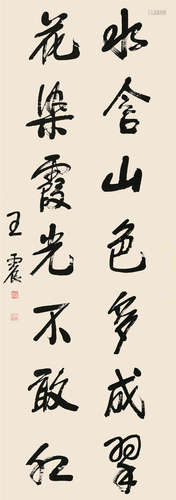 水含山色多成翠
花染霞光不敢红
王震